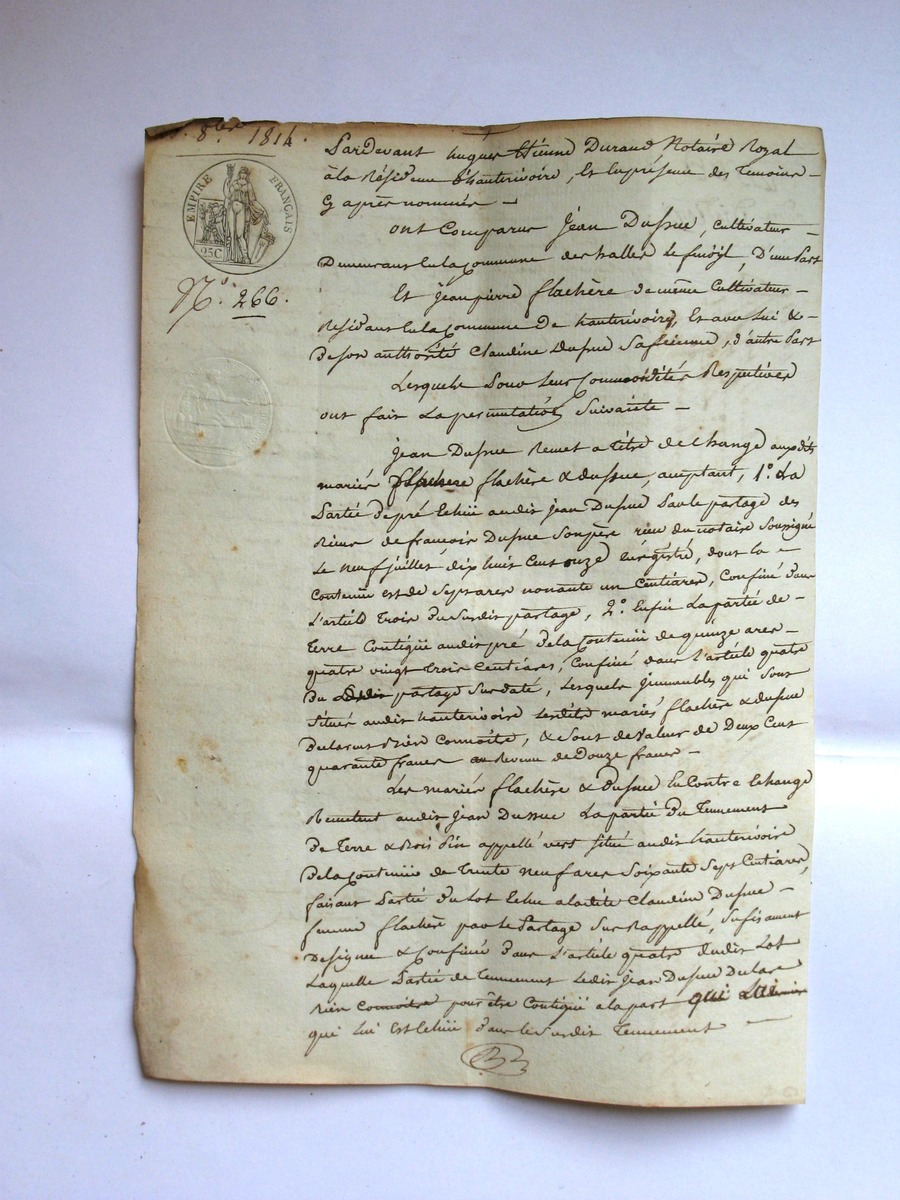 8bre 1814.
EMPIRE FRANÇAIS
25C
N.° 266.
Pardevant hugues Etienne Durand Notaire Royal
à la Résidence d'hauterivoire, Et en présence des Temoins
Cy après nommés
ont Comparus jean Dussuc, Cultivateur
Demeurant En la Commune des halles Le , D'une Part
Et jeanpierre flachère de même Cultivateur
Résidant En la Commune De hauterivoire, Et avec lui &
De son authorité Claudine Dussuc Sa femme, d'autre Part
Lesquels pour leurs Commodités Respectives
ont fait La permutation Suivante
jean Dussuc Remet a titre de change auxdits
mariés flachère & dussuc, acceptant, 1.° La
Partie de pré Echüe audit jean Dussuc Par le partage des
Biens de francois Dussuc Son père reçu du notaire Soussigné
Le neuf juillet dix huit Cent onze Enregistré, dont la
Contenüe est de Sept ares nonante un Centiares, Confiné dans
L'article Trois du Susdit partage, 2.° Enfin La partie de
Terre Contigüe audit pré De la Contenüe de quinze ares
quatre vingt Trois Centiares, Confiné dans l'article quatre
Du partage Sus daté, Lesquels jmmeubles qui Sont
Situés audit hauterivoire Lesdits mariés flachère & dussuc
Déclarent Bien Connoitre, & Sont de Valeur de Deux Cent
quarante francs au Revenu de Douze francs
Les mariés flachère & dussuc En Contre Echange
Remettent audit jean Dussuc La partie du Tennement
De Terre & Bois Pin appellé vert Situé audit hauterivoire
De la Contenüe de Trente neuf ares Soixante Sept Centiares,
faisant Partie du Lot Echu a ladite Claudine Dussuc
femme flachère par le Partage Sus Rappellé, Sufisament
Designé & Confiné Dans L'article quatre dudit Lot
Laquelle Partie de Tennement Ledit jean Dussuc Déclare
Bien Connoitre pour être Contigüe a la part qui Lui
qui lui est Echüe Dans le Susdit Tennement